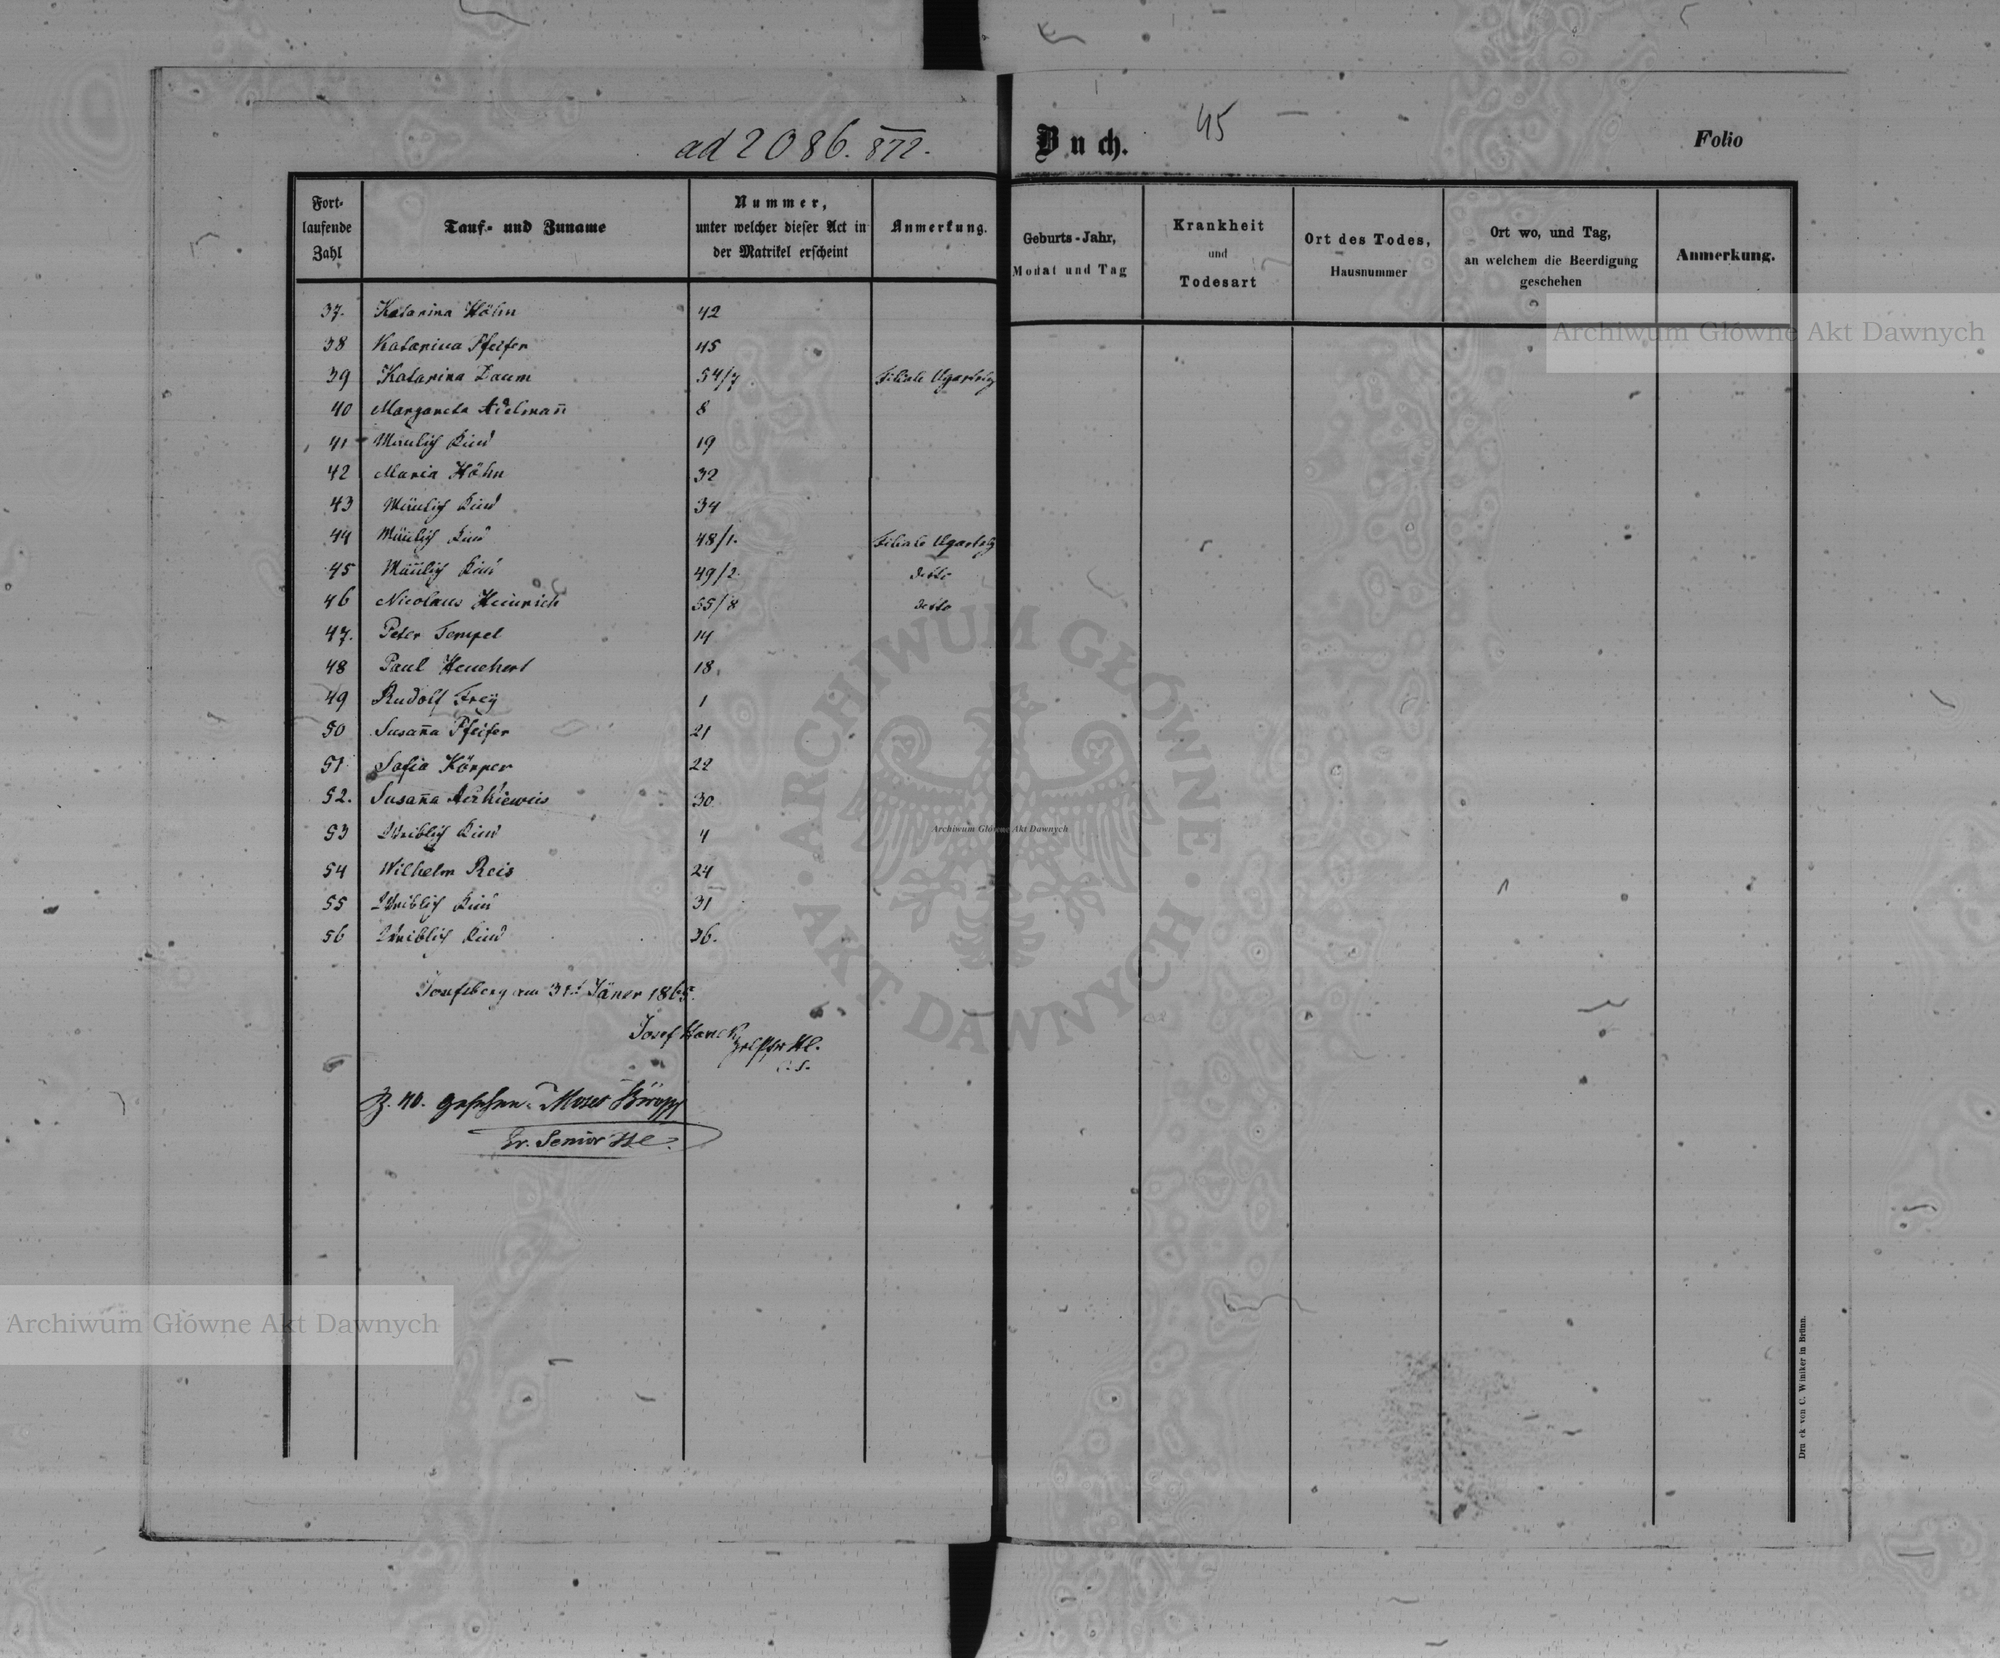 ad 2086. 872.
Fort-
laufende
Zahl
Tauf- und Zuname
Nummer,
unter welcher dieser Act in
der Matrikel erscheint
Anmerkung.
37. Katarina Höhn 42
38 Katarina Pfeifer 45
39 Katarina Daum 54/7 Filiale Ugartsbg
40 Margareta Adelman̄ 8
41 Män̄lich Kind 19
42 Maria Höhn 32
43 Män̄lich Kind 34
44 Män̄lich Kind 48/1. Filiale Ugartsbg
45 Män̄lich Kind 49/2. detto
46 Nicolaus Heinrich 55/8 detto
47. Peter Tempel 14
48 Paul Heuchert 18
49 Rudolf Freÿ 1
50 Susan̄a Pfeifer 21
51 Sofia Körper 22
52. Susan̄a 30
53 Weiblich Kind 4
54 Wilhelm Reis 24
55 Weiblich Kind 31
56 Weiblich Kind 36.
Josefsberg am 31. Jäner 1865.
Josef
Z. 40. Gesehen. Moser
Sr. Senior
Buch.
45
Folio
Geburts-Jahr,
Monat und Tag
Krankheit
und
Todesart
Ort des Todes,
Hausnummer
Ort wo, und Tag,
an welchem die Beerdigung
geschehen
Anmerkung.
Druck von C. Winiker in Brünn.
Archiwum Główne Akt Dawnych
ARCHIWUM GŁÓWNE
AKT DAWNYCH
Archiwum Główne Akt Dawnych
Archiwum Główne Akt Dawnych